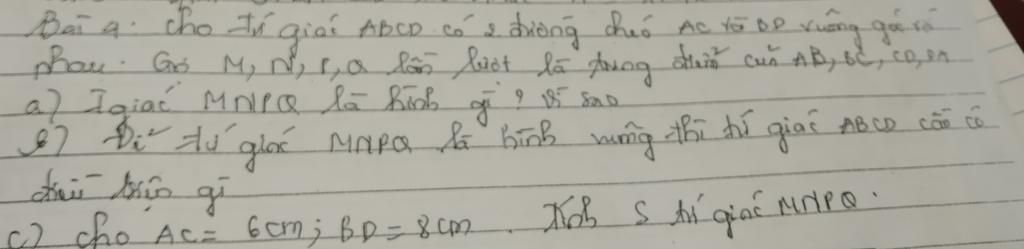 Bài 4: Cho tứ giác ABCD có 2 đường chéo AC và BD vuông góc với
nhau. Gọi M, N, P, Q lần lượt là trung điểm của AB, BC, CD, DA
a) Tgiác MNPQ là hình gì? Vì sao
b) Để tứ giác MNPQ là hình vuông thì tứ giác ABCD cần có
điều kiện gì
c) Cho AC = 6cm; BD = 8cm. Tính S tứ giác MNPQ.